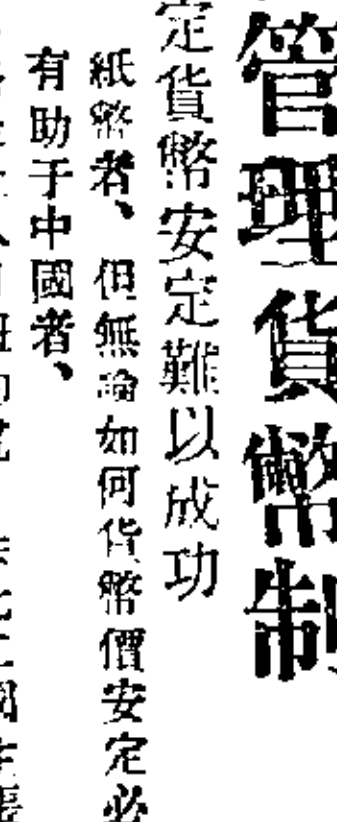 管理貨幣制
定貨幣安定難以成功
紙幣者、但無論如何貨幣價安定必
有助于中國者、